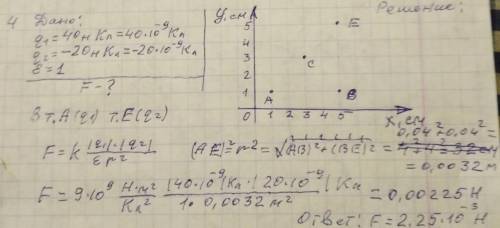 4 Дано:
q₁ = 40нКл = 40·10⁻⁹Кл
q₂ = -20нКл = -20·10⁻⁹Кл
ε = 1
F - ?
Решение:
y, см
5
E
4
3
C
2
1
A
B
0 1 2 3 4 5
x, см
В т.А (q₁) т.E (q₂)
F = k |q₁|·|q₂| / εr²
(AE)² = r² = (AB)² + (BE)² = 0,04² + 0,04² =
= 0,0032 м
F = 9·10⁹ Н·м²/Кл² · |40·10⁻⁹|Кл·|20·10⁻⁹|Кл / 1·0,0032 м² = 0,00225 Н
Ответ: F = 2,25·10⁻³ Н